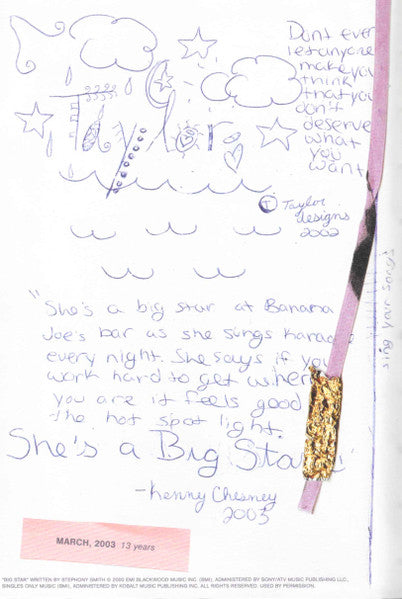 Dont ever
let anyone
make you
think
that you
don't
deserve
what
you
want
Taylor
T Taylor
designs
2002
sing your songs
"She's a big star at Banana
Joe's bar as she sings karao
every night. She says if you
work hard to get wher
you are it feels good
the hot spot light.
She's a Big Sta
-Kenny Chesney
2003
MARCH, 2003 13 years
"BIG STAR" WRITTEN BY STEPHONY SMITH © 2000 EMI BLACKWOOD MUSIC INC. (BMI), ADMINISTERED BY SONY/ATV MUSIC PUBLISHING LLC.,
SINGLES ONLY MUSIC (BMI), ADMINISTERED BY KOBALT MUSIC PUBLISHING INC. ALL RIGHTS RESERVED. USED BY PERMISSION.